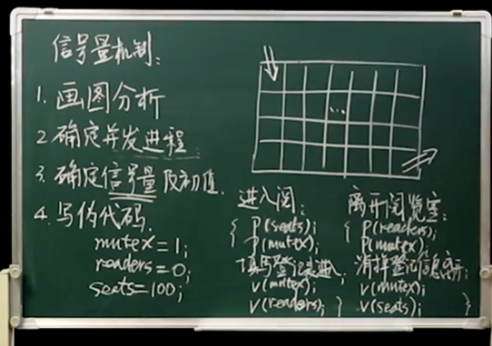 信号量机制:
1. 画图分析
2. 确定并发进程.
3. 确定信号量及初值.
4. 写伪代码.
mutex=1;
readers=0;
seats=100;
...
进入阅:
{ P(seats);
P(mutex);
填写登记表进入;
V(mutex);
V(readers); }
离开阅览室:
{ P(readers);
P(mutex);
消掉登记信息离开;
V(mutex);
V(seats); }